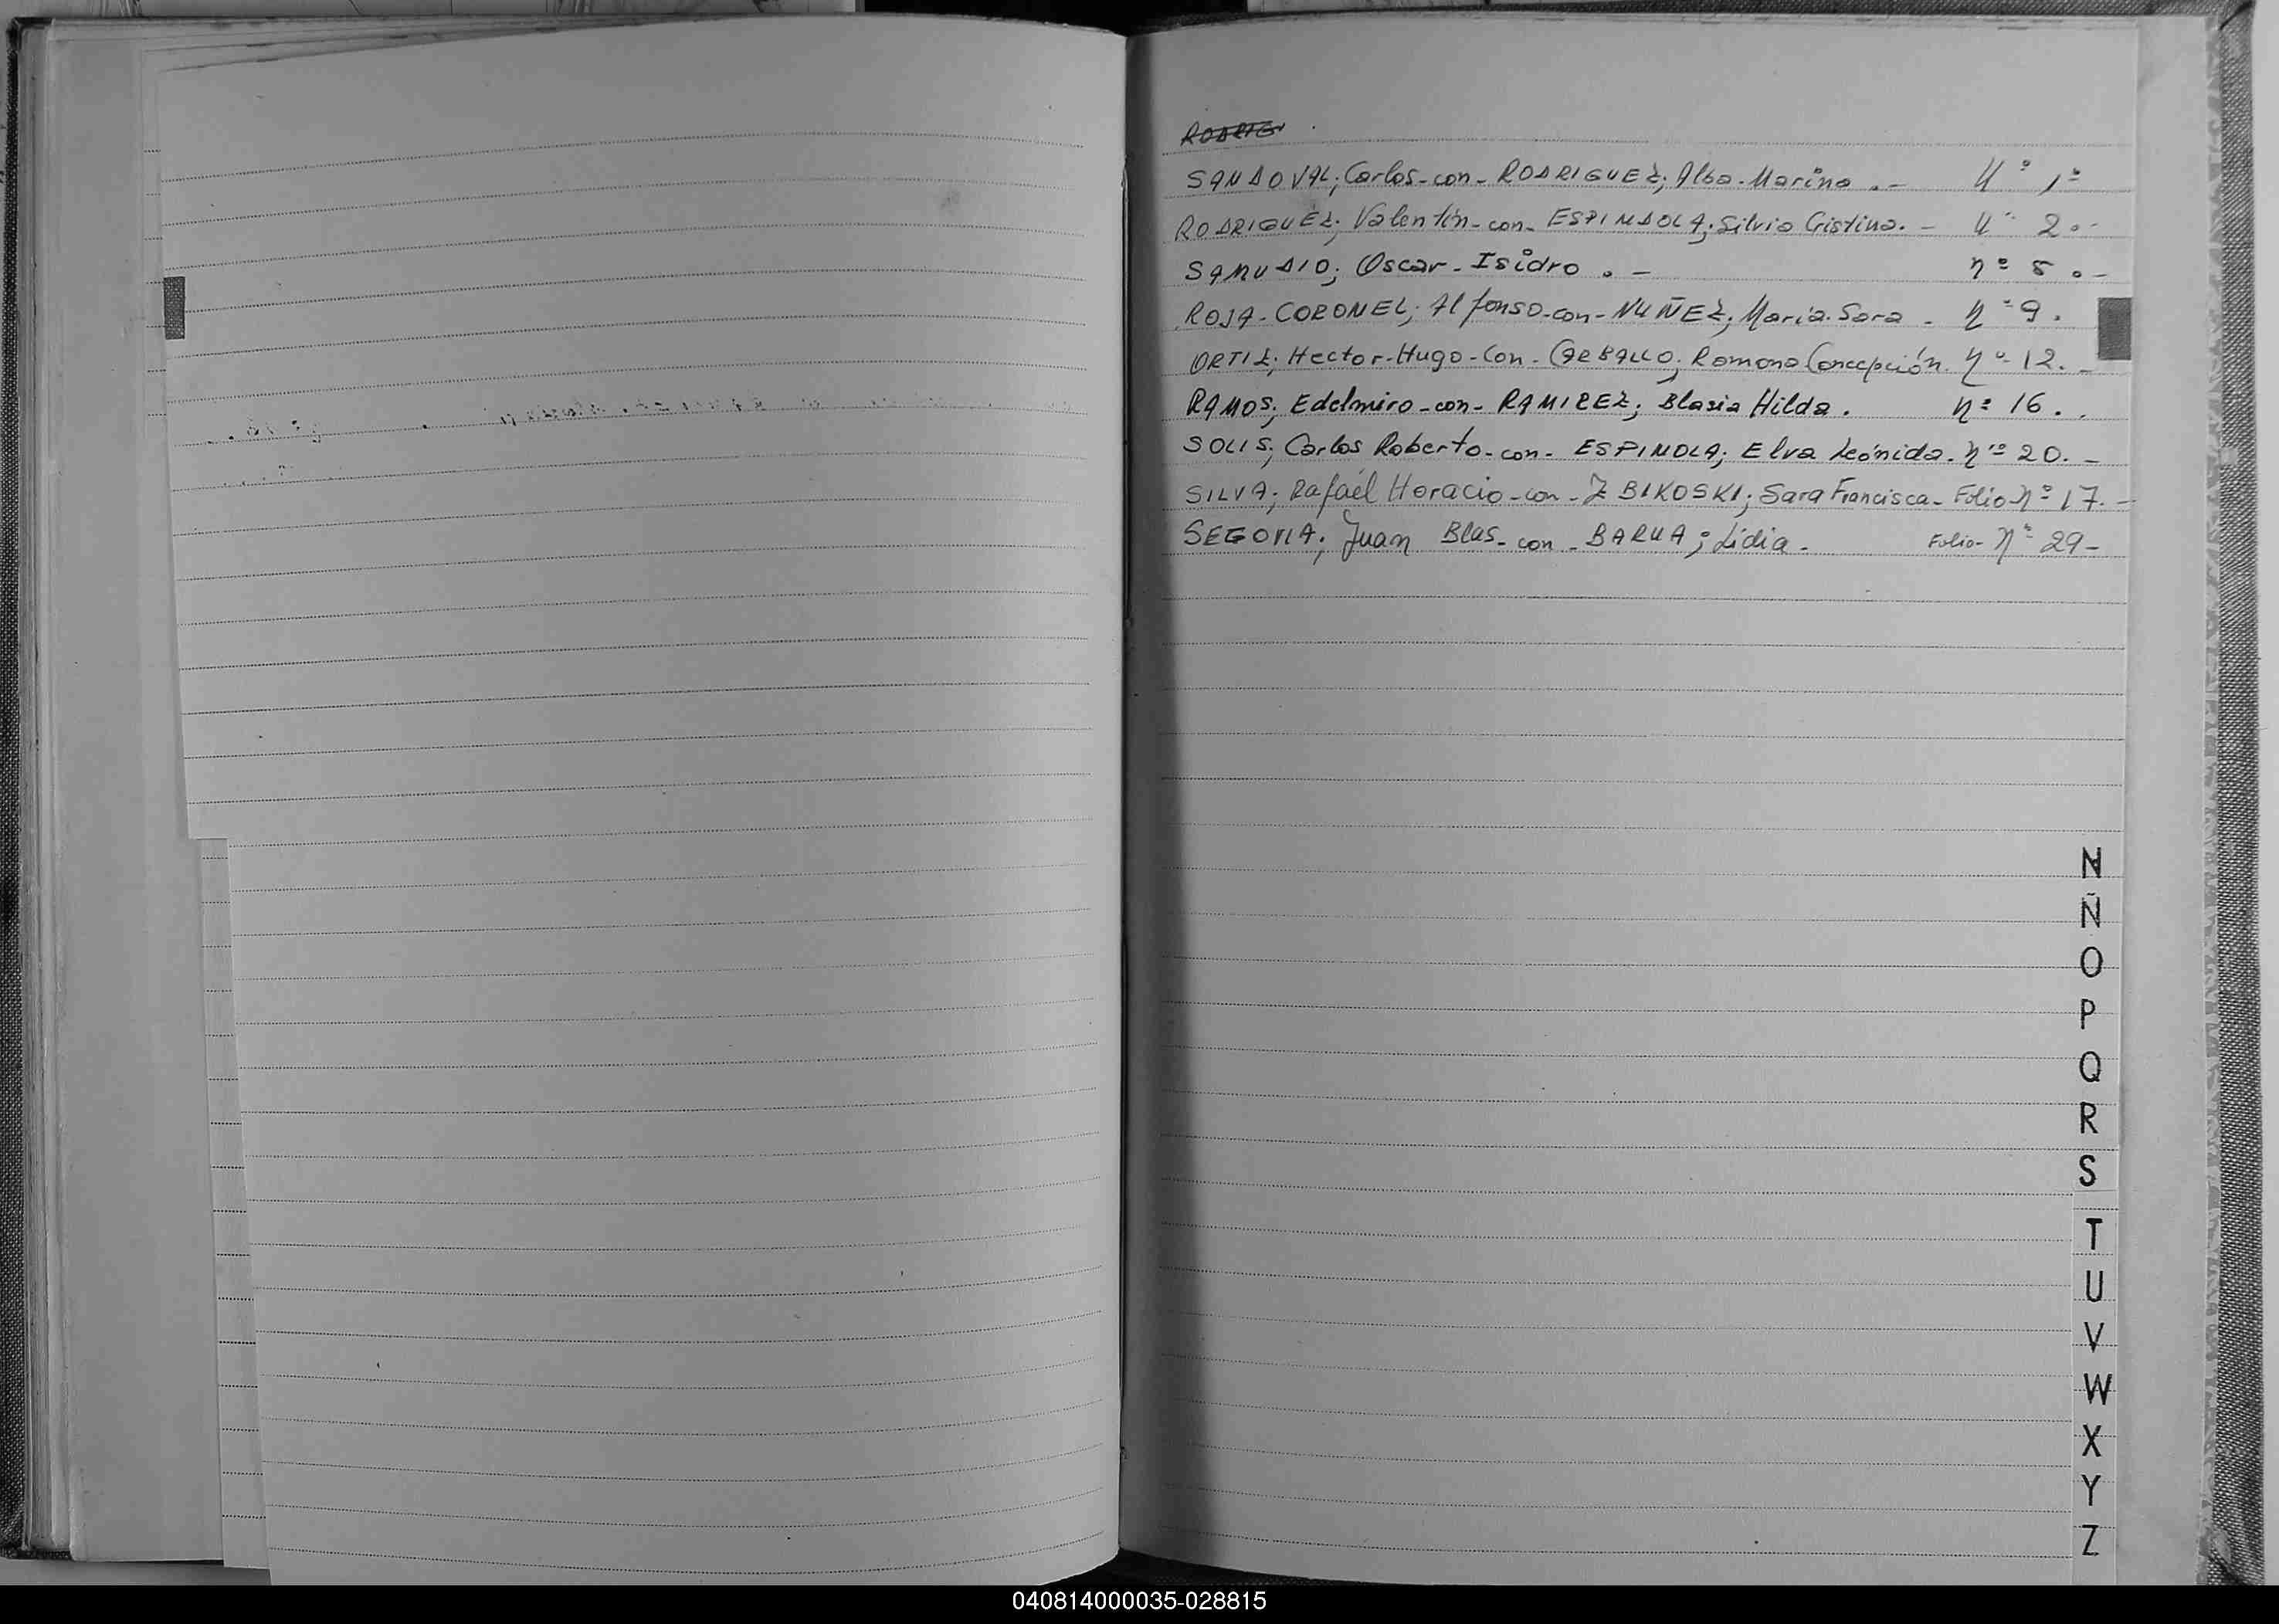 RODRIG
SANDOVAL; Carlos-con-RODRIGUEZ; Alba-Marina.- Nº 1º
RODRIGUEZ; Valentín-con-ESPINDOLA; Silvia Cristina.- Nº 2.-
SANUDIO; Oscar-Isidro.- nº 5.-
ROJA-CORONEL; Alfonso-con-NUÑEZ; María-Sara- nº 9.
ORTIZ; Hector-Hugo-Con-CARBALLO; Ramona Concepción. nº 12.-
RAMOS; Edelmiro-con-RAMIREZ; Blasia Hilda. nº 16..
SOLIS; Carlos Roberto-con-ESPINOLA; Elva Leónida. nº 20.-
SILVA; Rafaél Horacio-con-ZBIKOSKI; Sara Francisca- Folio nº 17.-
SEGOVIA; Juan Blas-con-BARUA; Lidia. Folio- nº 29-
N
Ñ
O
P
Q
R
S
T
U
V
W
X
Y
Z
040814000035-028815